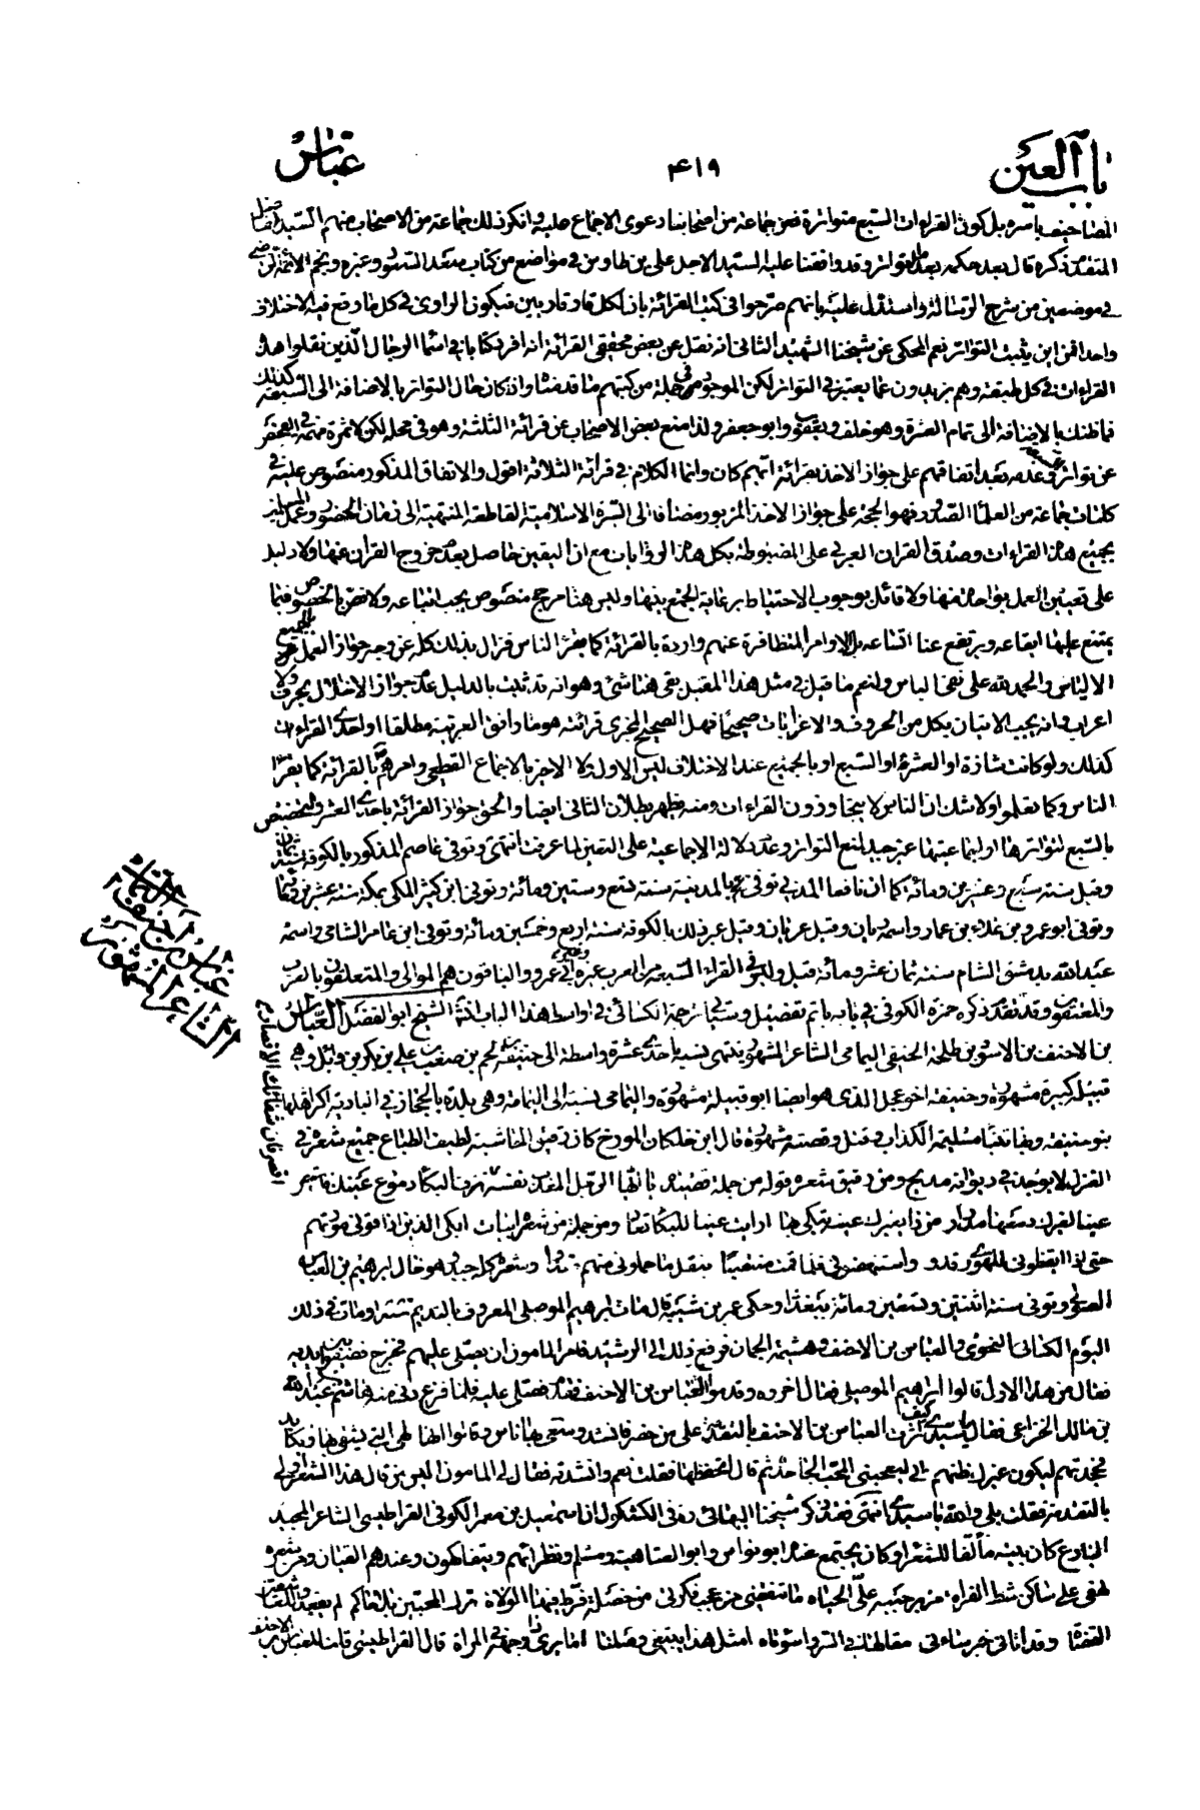 باب العين
٤١٩
عباس
المصاحف باسره بل كون القراءات السبع متواترة فعن جماعة من اصحابنا دعوى الاجماع عليه وانكر ذلك جماعة من الاصحاب منهم السيد الفاضل
المتقدم ذكره قال بعد حكمه بعدم التواتر وقد وافقنا عليه السيد الاجل على بن طاوس في مواضع من كتاب سعد السعود وغيره ونجم الائمة الرضي
في موضعين من شرح الرسالة واستدل عليه بانهم صرحوا في كتب القرائة بان لكل قار قاريين فيكون الراوى في كل ما وقع فيه الاختلاف
واحدا فمن اين يثبت التواتر نعم المحكى عن شيخنا الشهيد الثانى انه نقل عن بعض محققى القرائة انه افرد كتابا في اسماء الرجال الذين نقلوا هذه
القراءات في كل طبقة وهم يزيدون عما يعتبر في التواتر لكن الموجود في جملة من كتبهم ما قدمنا واذا كان حال التواتر بالاضافة الى السبعة كذلك
فما ظنك بالاضافة الى تمام العشرة وهو خلف ويعقوب وابو جعفر ولذا منع بعض الاصحاب عن قرائة الثلثة وهو في محله لكن لا ثمرة مهمة في الفحص
عن تواتره وعدمه بعد اتفاقهم على جواز الاخذ بقرائة ايهم كان وانما الكلام في قرائة الثلاثة اقول والاتفاق المذكور منصوص عليه في
كلمات جماعة من العلماء الصدور فهو الحجة على جواز الاخذ المزبور مضافا الى السيرة الاسلامية القاطعة المنتهية الى زمان الحضور وعمل المسلمين
بجميع هذه القراءات وصدق القران العربي على المضبوطة بكل هذه الروايات مع ان اليقين حاصل بعدم خروج القران عنها ولا دليل
على تعيين العمل بواحدة منها ولا قائل بوجوب الاحتياط برعاية الجمع بينها وليس هنا مرجح منصوص يجب اتباعه ولا نص بالخصوص فيما
يمتنع علينا ايقاعه ويرتفع عنا اتساعه بل الاوامر المتظافرة عنهم واردة بالقرائة كما يقرء الناس فزال بذلك كله عن وجه جواز العمل بالجميع
الالباس والحمد لله على نفى الباس ولنعم ما قيل في مثل هذا المقبل بقى هنا شئ وهو انه قد ثبت بالدليل عدم جواز الاخلال بحرف ولا
اعراب وانه يجب الاتيان بكل من الحروف والاعرابات صحيحا فهل الصحيح المجزى قرائته هو ما وافق العربية مطلقا او احدى القراءات
كذلك ولو كانت شاذة او العشرة او السبع او بالجميع عند الاختلاف ليس الاول ولا الاخر بالاجماع القطعى وامرهم بالقرائة كما يقرأ
الناس وكما تعلموا ولا شك ان الناس لا يتجاوزون القراءات ومنه يظهر بطلان الثانى ايضا والحق جواز القرائة باحدى العشر والتخصيص
بالسبع لتواترها او اجماعيتها غير جيد لمنع التواتر وعدم دلالة الاجماعية على التعين لما عرفت انتهى وتوفى عاصم المذكور بالكوفة سنة ثمان
وقيل سنة سبع وعشرين ومائة كما ان نافعا المدنى توفى بالمدينة سنة تسع وستين ومائة وتوفى ابن كثير المكى بمكة سنة عشرين ومائة
وتوفى ابو عمرو بن علاء بن عمار واسمه زبان وقيل عريان وقيل غير ذلك بالكوفة سنة اربع وخمسين ومائة وتوفى ابن عامر الشامى واسمه
عبد الله بدمشق الشام سنة ثمان عشر ومائة قيل وليس في القراء السبعة من العرب غيره وغير ابى عمرو والباقون هم الموالى والمتعلقون بالعرب
والمعتقون وقد تقدم ذكر حمزة الكوفى في بابه باتم تفصيل وستاتى ترجمة الكسائى في اواسط هذا الباب انشاء الله الشيخ ابو الفضل العباس
بن الاحنف بن الاسود بن طلحة الحنفى اليمامى الشاعر المشهور ينتهى نسبه باحدى عشرة واسطة الى حنيفة بن لجيم بن صعب بن على بن بكر بن وائل وهى
قبيلة كبيرة مشهورة وحنيفة اخو عجل الذى هو ايضا ابو قبيلة مشهورة واليمامى نسبة الى اليمامة وهى بلدة بالحجاز في البادية اكثر اهلها
بنو حنيفة وبها تنبأ مسليمة الكذاب وقتل وقصته مشهورة قال ابن خلكان المورخ كان رقيق الحاشية لطيف الطباع جميع شعره في
الغزل لا يوجد في ديوانه مديح ومن رقيق شعره قوله من جملة قصيدة يا ايها الرجل المعذب نفسه نزف البكاء دموع عينك فاستعر
عينا لغيرك دمعها مدرار من ذا يعيرك عينه تبكى بها ارايت عينا للبكاء تعار ومن جملة من شعره ابيات ابكى الذين اذاقونى مودتهم
حتى اذا ايقظونى للهوى رقدوا واستنهضونى فلما قمت منتصبا بثقل ما حملونى منهم قعدوا وشعره كله جيد وهو خال ابراهيم بن العباس
الصولى وتوفى سنة اثنتين وتسعين ومائة ببغداد وحكى عمر بن شبية قال مات ابراهيم الموصلى المعروف بالنديم ومات في ذلك
اليوم الكسائى النحوى والعباس بن الاحنف وهشيمة الخمارة فرفع ذلك الى الرشيد فامر المامون ان يصلى عليهم فخرج فصفوا بين يديه
فقال من هذا الاول قالوا ابراهيم الموصلى فقال اخروه وقدموا العباس بن الاحنف فقدم فصلى عليه فلما فرغ دنى منه هاشم بن عبد الله
بن مالك الخزاعى فقال يا سيدى كيف اثرت العباس بن الاحنف بالتقدمة على من حضر فانشد وسعى بها ناس وقالوا انها لهى التى تشقى بها وتكابد
فجحدتهم ليكون غيرك ظنهم انى ليعجبنى المحب الجاحد ثم قال اتحفظها فقلت نعم وانشدته فقال لى المامون اليس من قال هذا الشعر اولى
بالتقدمة فقلت بلى والله يا سيدى انتهى وقد ذكر شيخنا البهائى ره في الكشكول ان اسمعيل بن معمر الكوفى القراطيسى الشاعر المجيد
البارع كان بيته مألفا للشعراء وكان يجتمع عنده ابو نواس وابو العتاهية ومسلم ونظرائهم ويتفاكهون وعندهم القيان ومن شعره
لهفى على ساكن شط الفراة مرر حبيه على الحياة ما تنقضى من عجب فكرتى من خصلة فرط فيها الولاة ترك المحبين بلا حاكم لم يقعدوا للعاشقين
القضاة وقد اتانى خبر ساءنى مقالها في السر واسوتاه امثل هذا يبتغى وصلنا اما يرى ذا وجهه في المراة قال القراطيسى قلت للعباس بن الاحنف
عباس بن احنف اليمامى
الشاعر المشهور